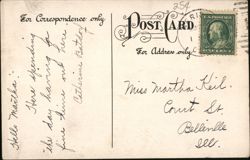 254
For Correspondence only
POST CARD
For Address only
Hello Martha:-
Here spending
the day having a
fine time out here
Catherine
Miss Martha Keil.
Court St.
Belleville
Ill.